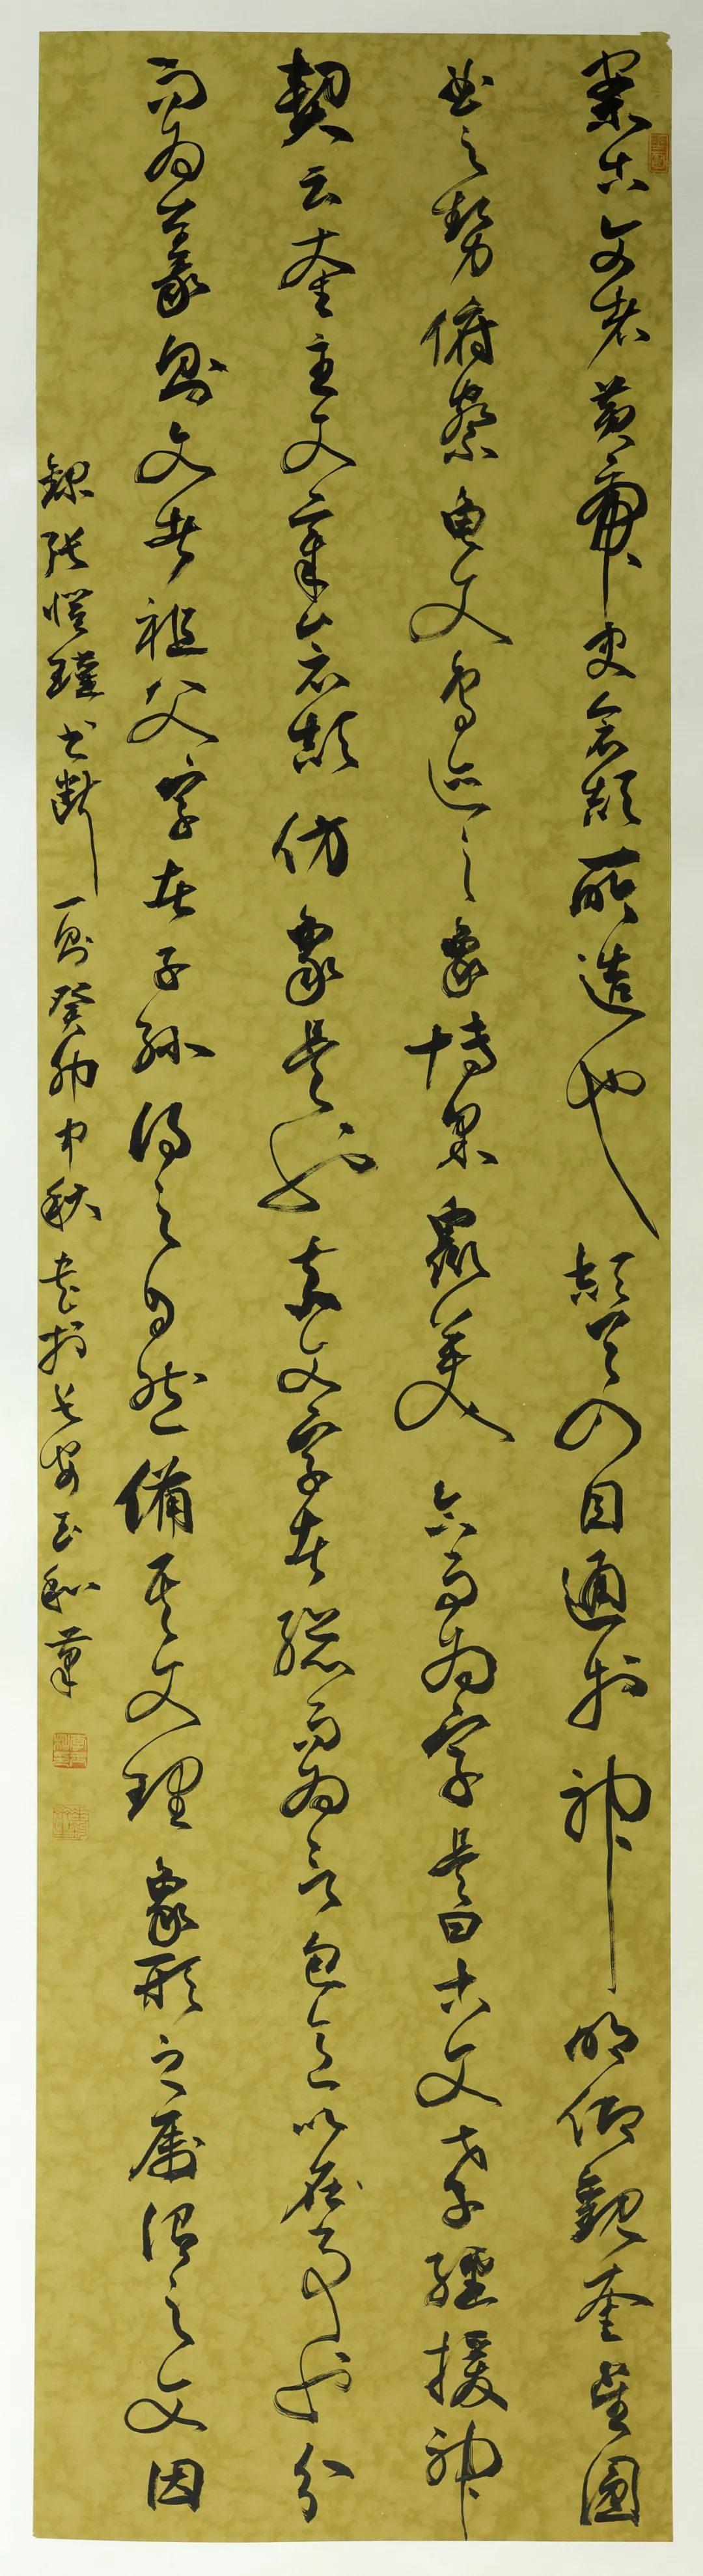 案古文者黄帝史仓頡所造也頡首四目通於神明仰觀奎星圜
曲之勢俯察龜文鳥迹之象博采衆美合而為字是曰古文孝經援神
契云奎主文章蒼頡仿象是也夫文字者總而為言包意以名事也分
而為義則文者祖父字者子孫得之自然備其文理象形之屬謂之文因
錄張懷瓘書斷一則癸卯中秋書於長安玉和草